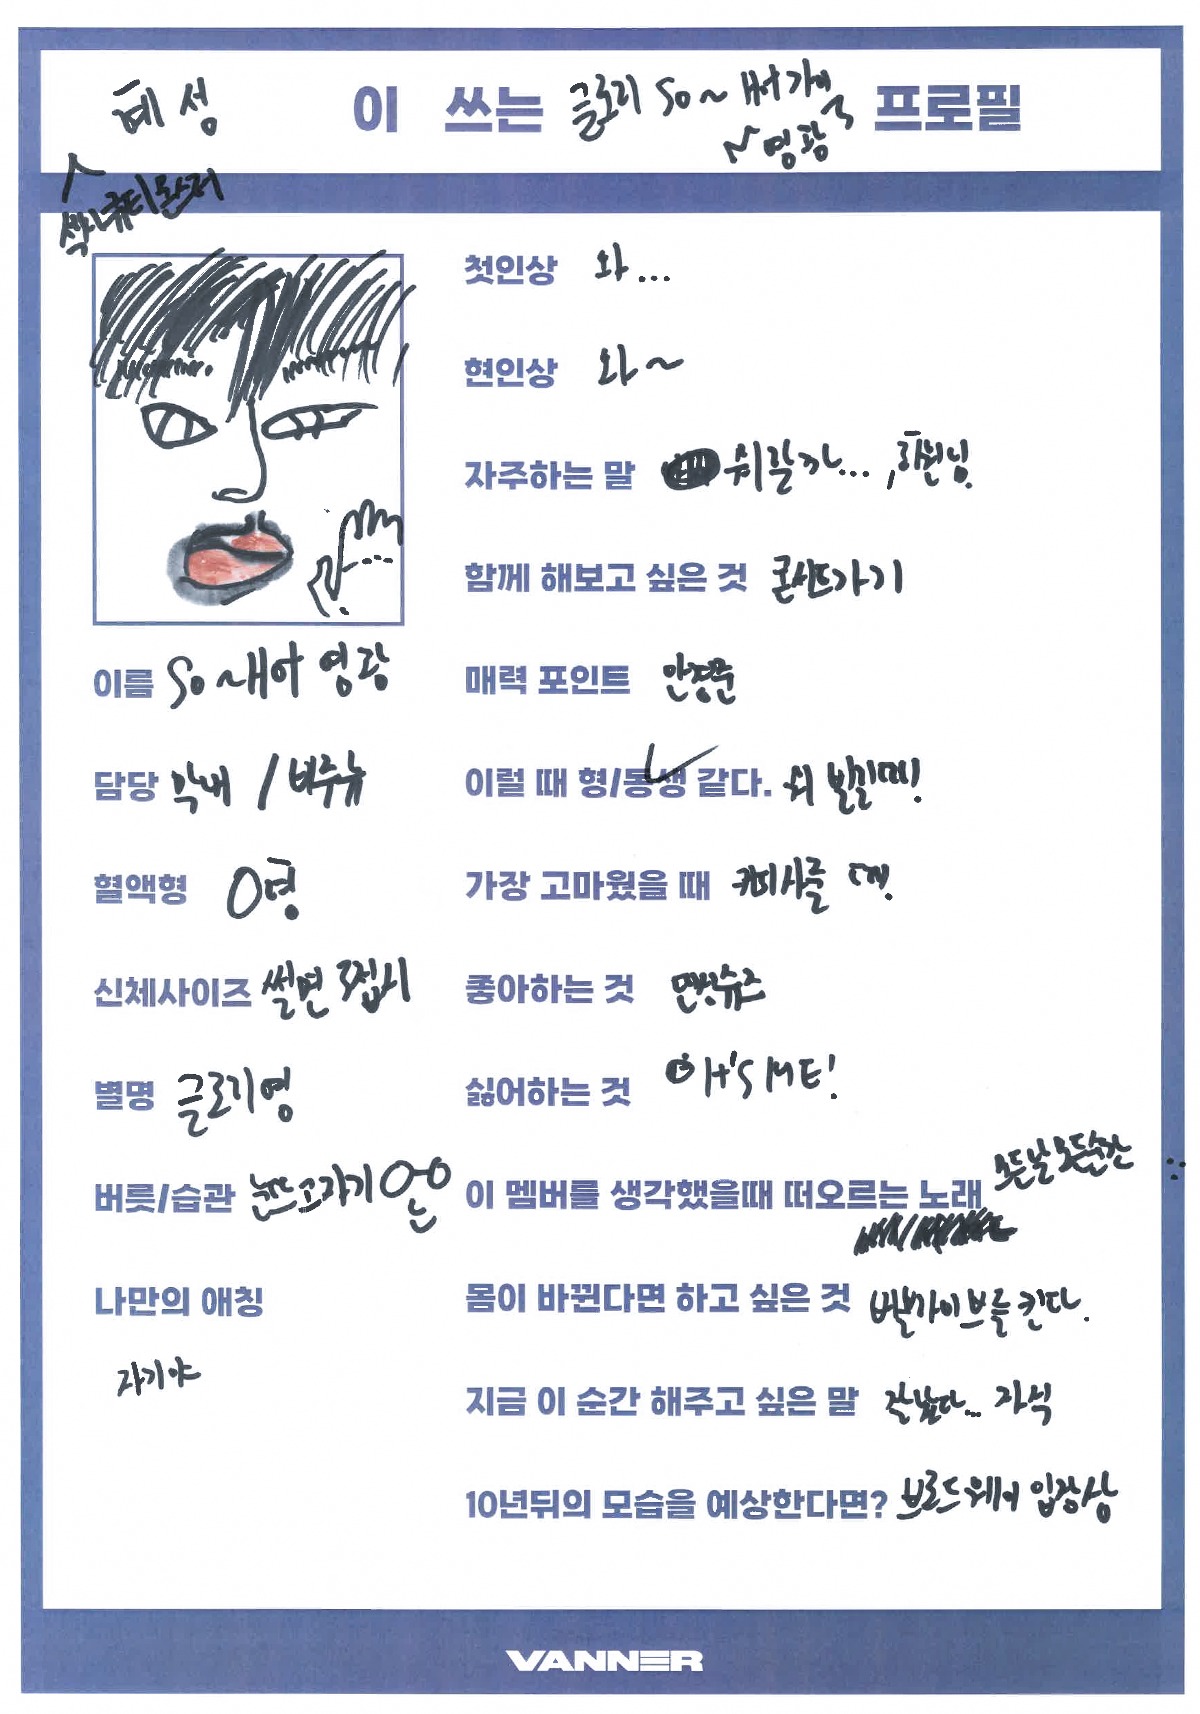 혜성 이 쓰는 글로리 So~ 프로필
~영광
섹시큐티몬스터
첫인상 와...
현인상 와~
자주하는 말 뭐랄까..., 회원님
함께 해보고 싶은 것 콘서트가기
이름 So~ 영광
매력 포인트 안정운
담당 막내 / 비주뉴
이럴 때 형/동생 같다. 뭐
혈액형 O형
가장 고마웠을 때 커피사줄 때.
신체사이즈 썰면 3접시
좋아하는 것
별명 글로기영
싫어하는 것 It'S ME!
버릇/습관 눈뜨고자기 눈
이 멤버를 생각했을때 떠오르는 노래 모든날 모든순간
나만의 애칭
몸이 바뀐다면 하고 싶은 것 브를 킨다.
자기야
지금 이 순간 해주고 싶은 말 잘났다... 자식
10년뒤의 모습을 예상한다면? 브로드웨이 입장상
VANNER